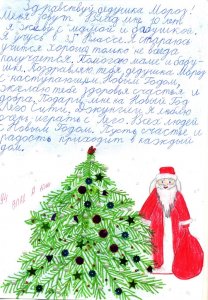 Здравствуй дедушка Мороз!
Меня зовут Влад мне 10 лет.
Я живу с мамой и бабушкой.
Я учусь в 4 классе. Стараюсь
учится хорошо только не всегда
получается. Помогаю маме и бабу-
шке. Поздравляю тебя, дедушка Мороз
с наступающим новым Годом,
Желаю тебе здоровья счастья и
добра. Подари мне на Новый Год
Лего Сити, пожарную. Я люблю
играть с Лего. Всех людей
с Новым Годом. Пусть счастье и
радость приходит в каждый
дом.